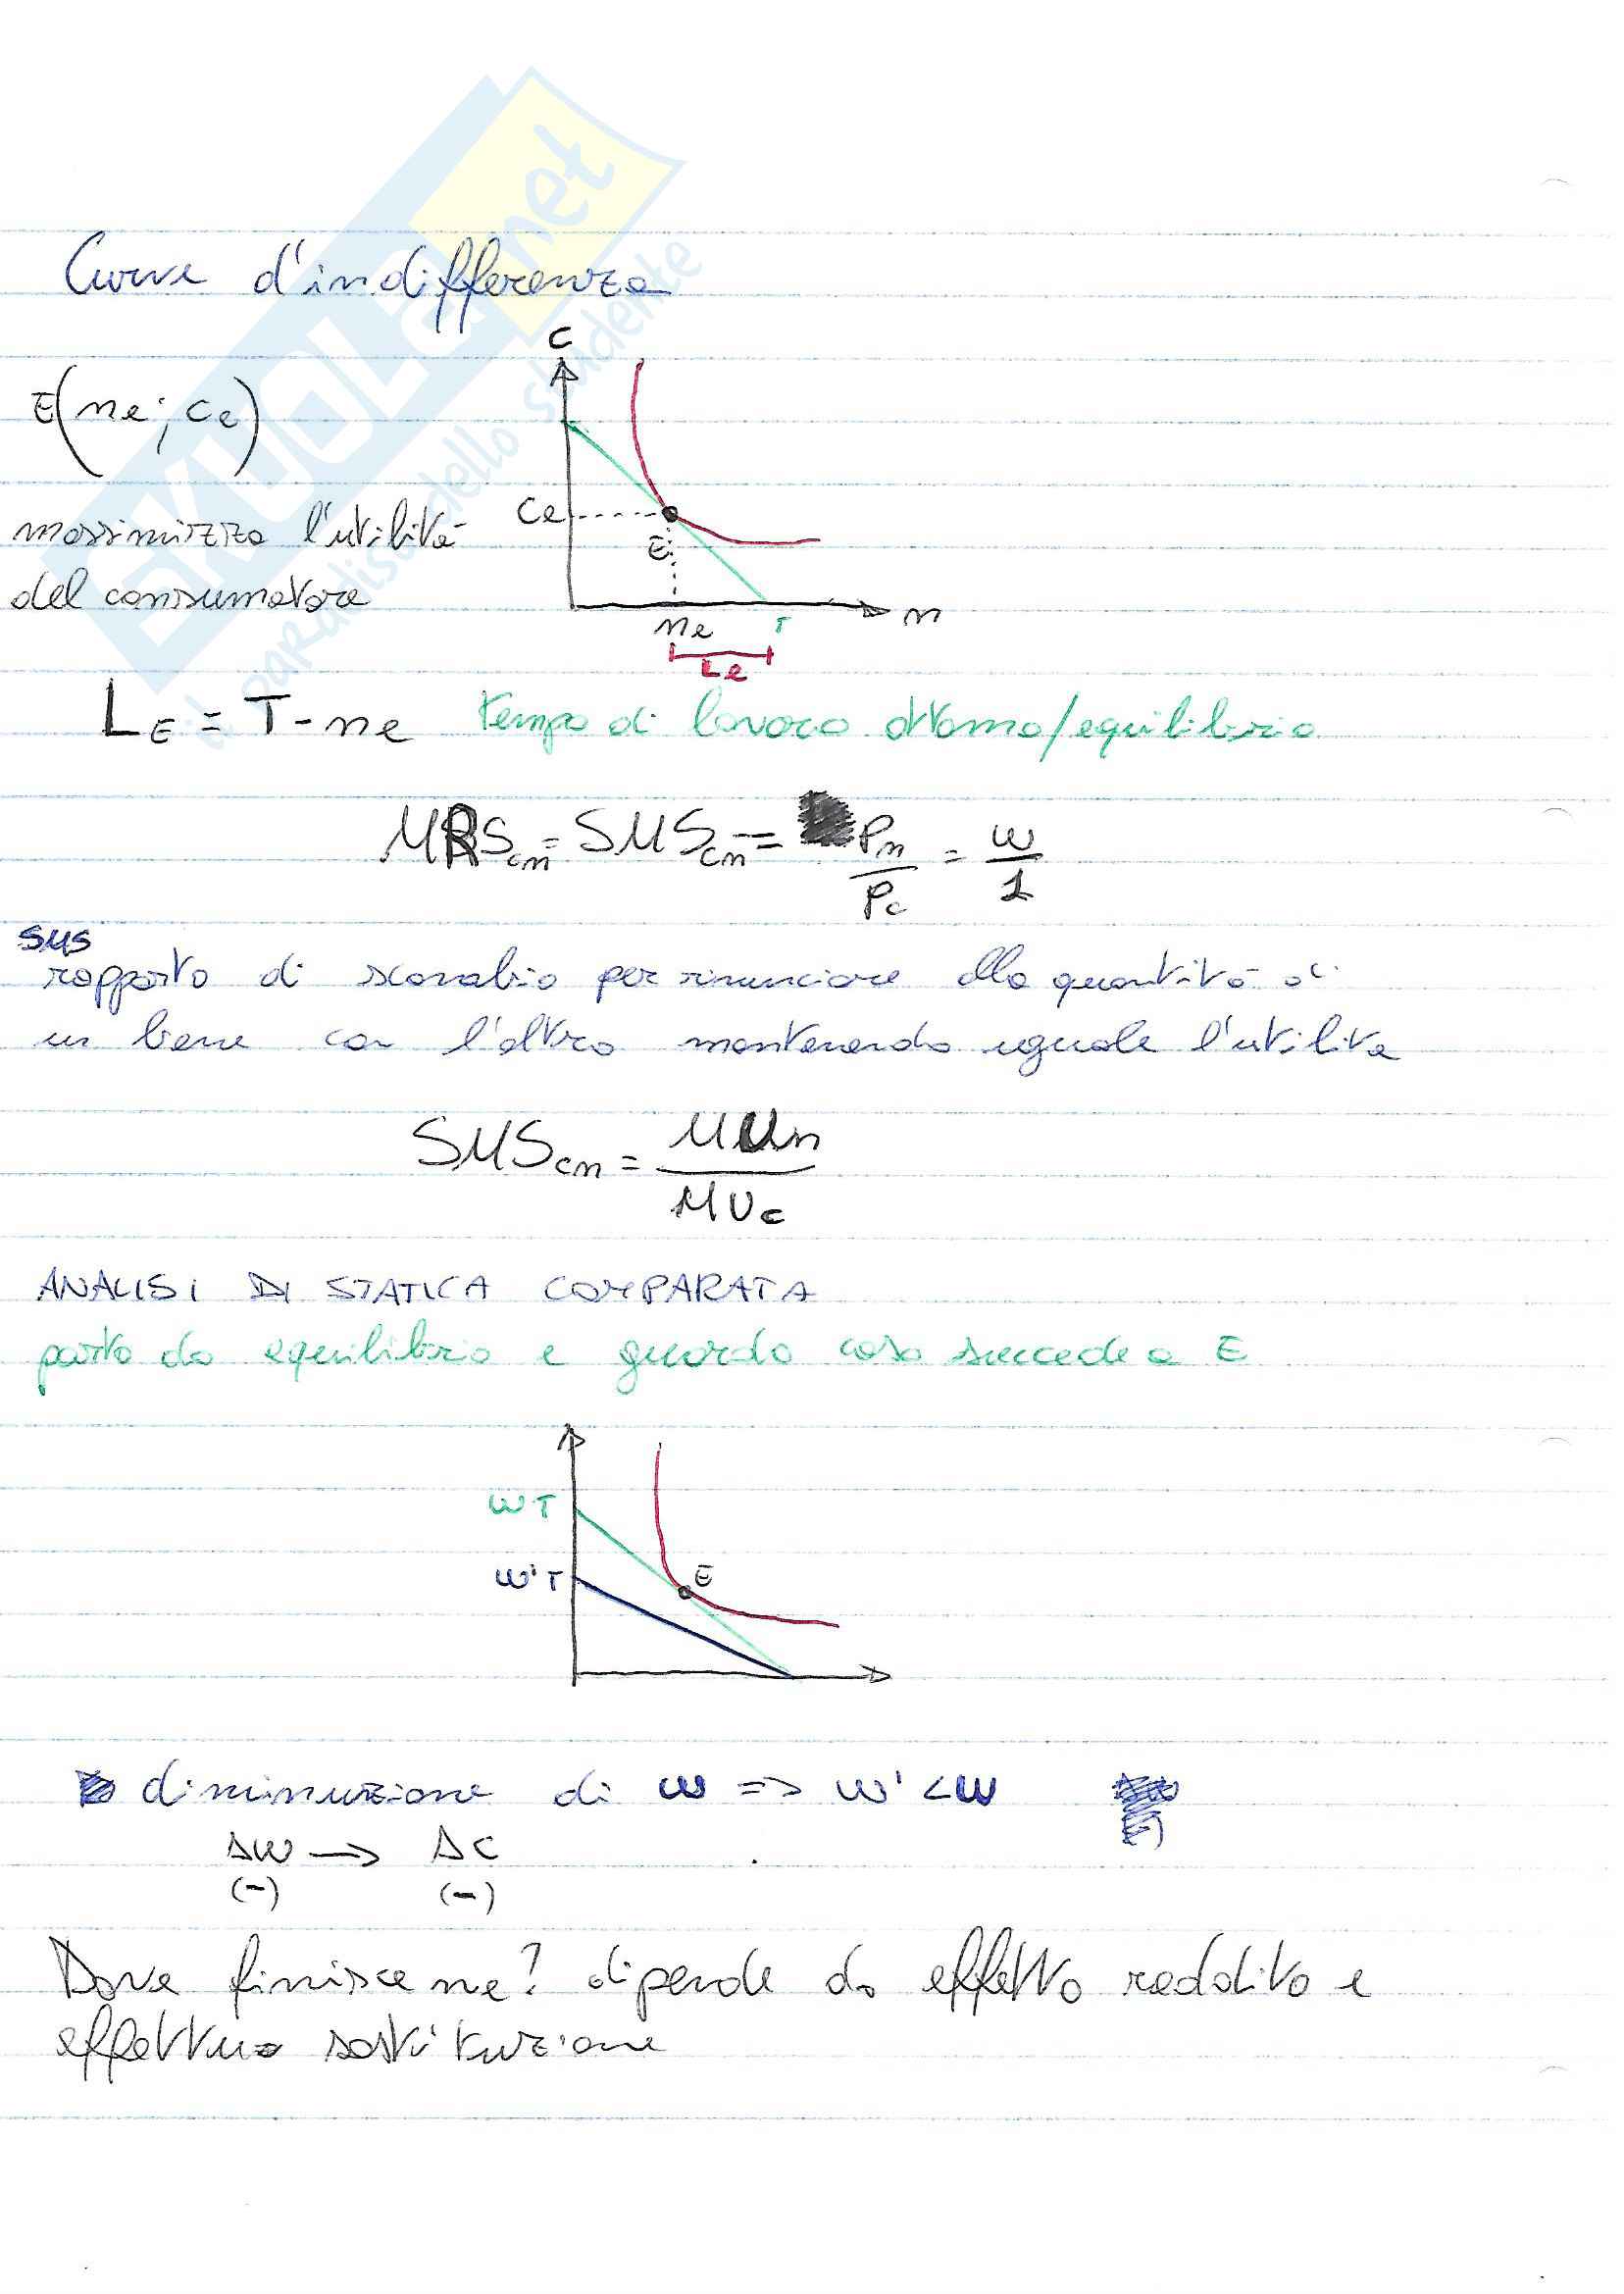 SKUOLA.net
il paradiso dello studente
Curve d'indifferenza
C
E(ne; ce)
Ce
massimizza l'utilità
E
del consumatore
n
ne
T
Le
LE = T - ne tempo di lavoro ottimo/equilibrio
MRScn = SMScn = Pn/Pc = w/1
SMS
rapporto di scambio per rinunciare alla quantità di
un bene con l'altro mantenendo uguale l'utilità
SMScn = MUn/MUc
ANALISI DI STATICA COMPARATA
parto da equilibrio e guardo cosa succede a E
wT
w'T
E
diminuzione di w => w' < w
Δw → Δc
(-) (-)
Dove finisce ne? dipende da effetto reddito e
effettuo sostituzione